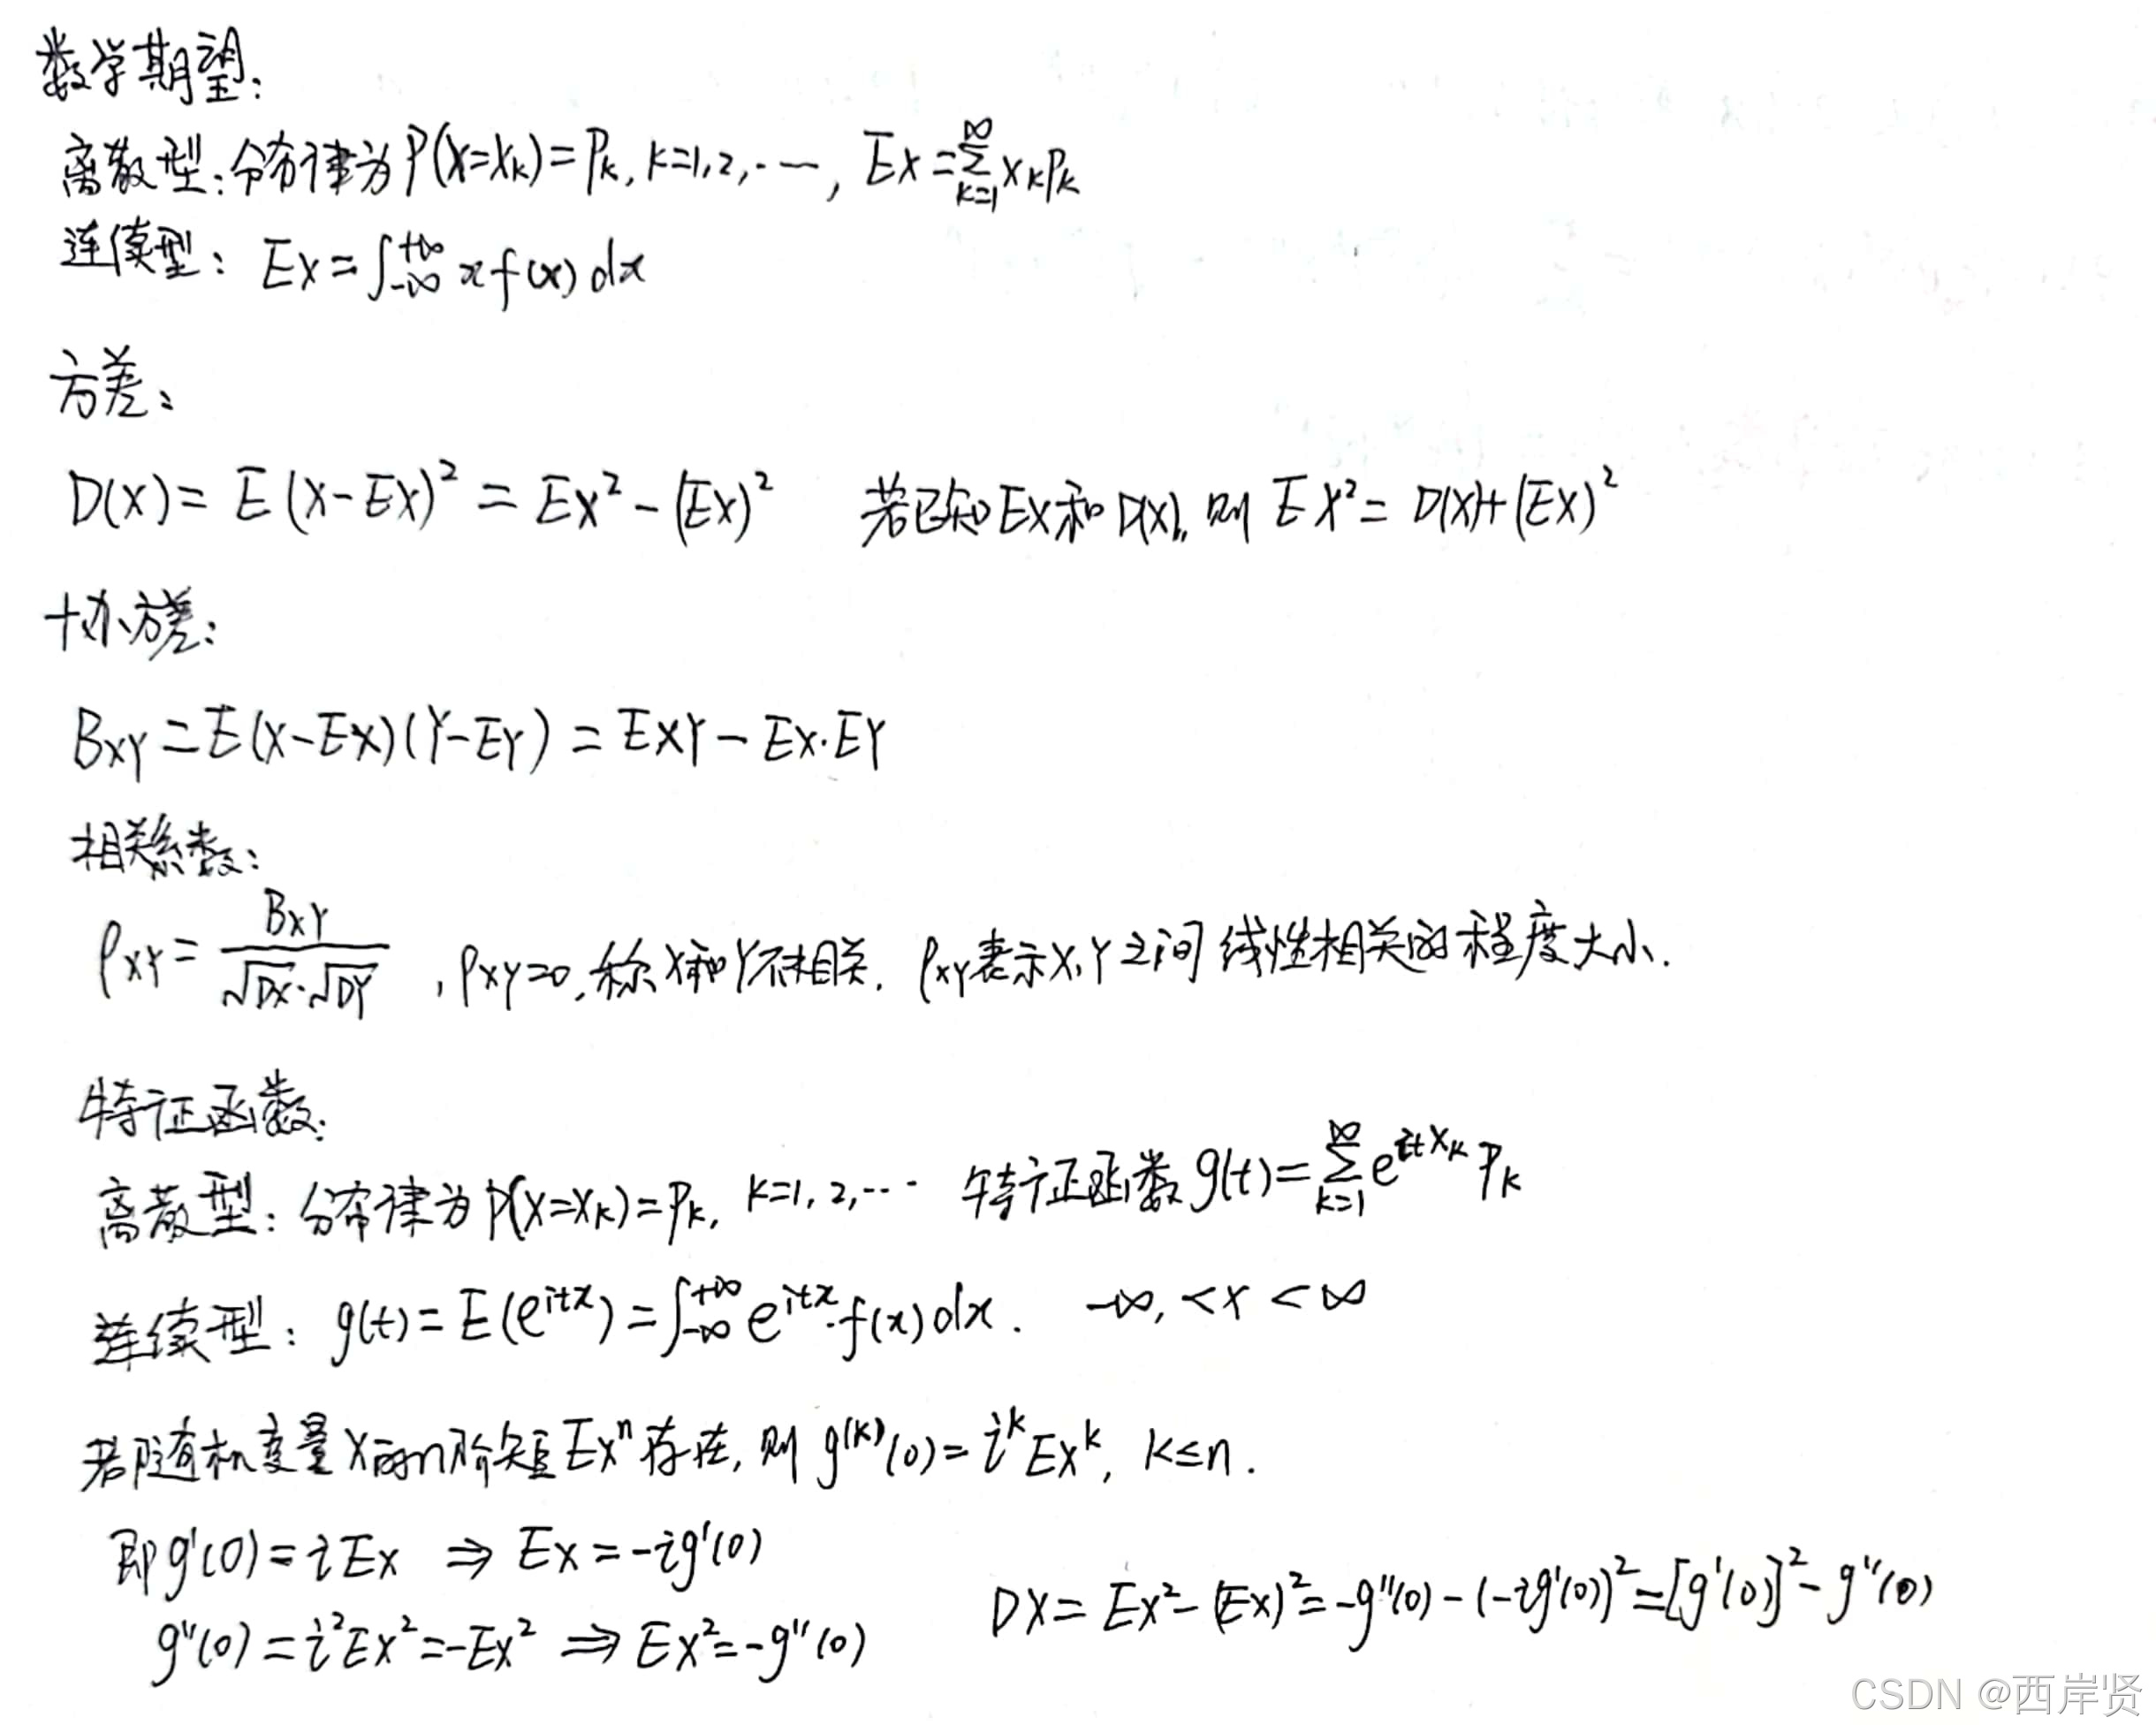 数学期望:
离散型:分布律为P(X=Xk)=Pk, k=1,2,……, EX=∑_{k=1}^{∞} XkPk
连续型: EX=∫_{-∞}^{+∞} x f(x) dx
方差:
D(X)= E(X-EX)² = EX²-(EX)² 若已知EX和D(X),则 EX²= D(X)+(EX)²
协方差:
B_{XY}=E(X-EX)(Y-EY) = EXY-EX·EY
相关系数:
ρ_{XY}= B_{XY}/(√DX·√DY) , ρ_{XY}=0, 称X和Y不相关. ρ_{XY}表示X,Y之间线性相关的程度大小.
特征函数:
离散型: 分布律为P(X=Xk)=Pk, k=1,2,… 特征函数g(t)=∑_{k=1}^{∞} e^{itXk} Pk
连续型: g(t)=E(e^{itx})=∫_{-∞}^{+∞} e^{itx}·f(x)dx. -∞, <x<∞
若随机变量X的n阶矩EXⁿ存在, 则g^{(k)}(0)=i^k EX^k, k≤n.
即g'(0)=iEX ⇒ EX=-ig'(0)
g''(0)=i²EX²=-EX² ⇒ EX²=-g''(0) DX= EX²-(EX)²=-g''(0)-(-ig'(0))²=[g'(0)]²-g''(0)
CSDN @西岸贤